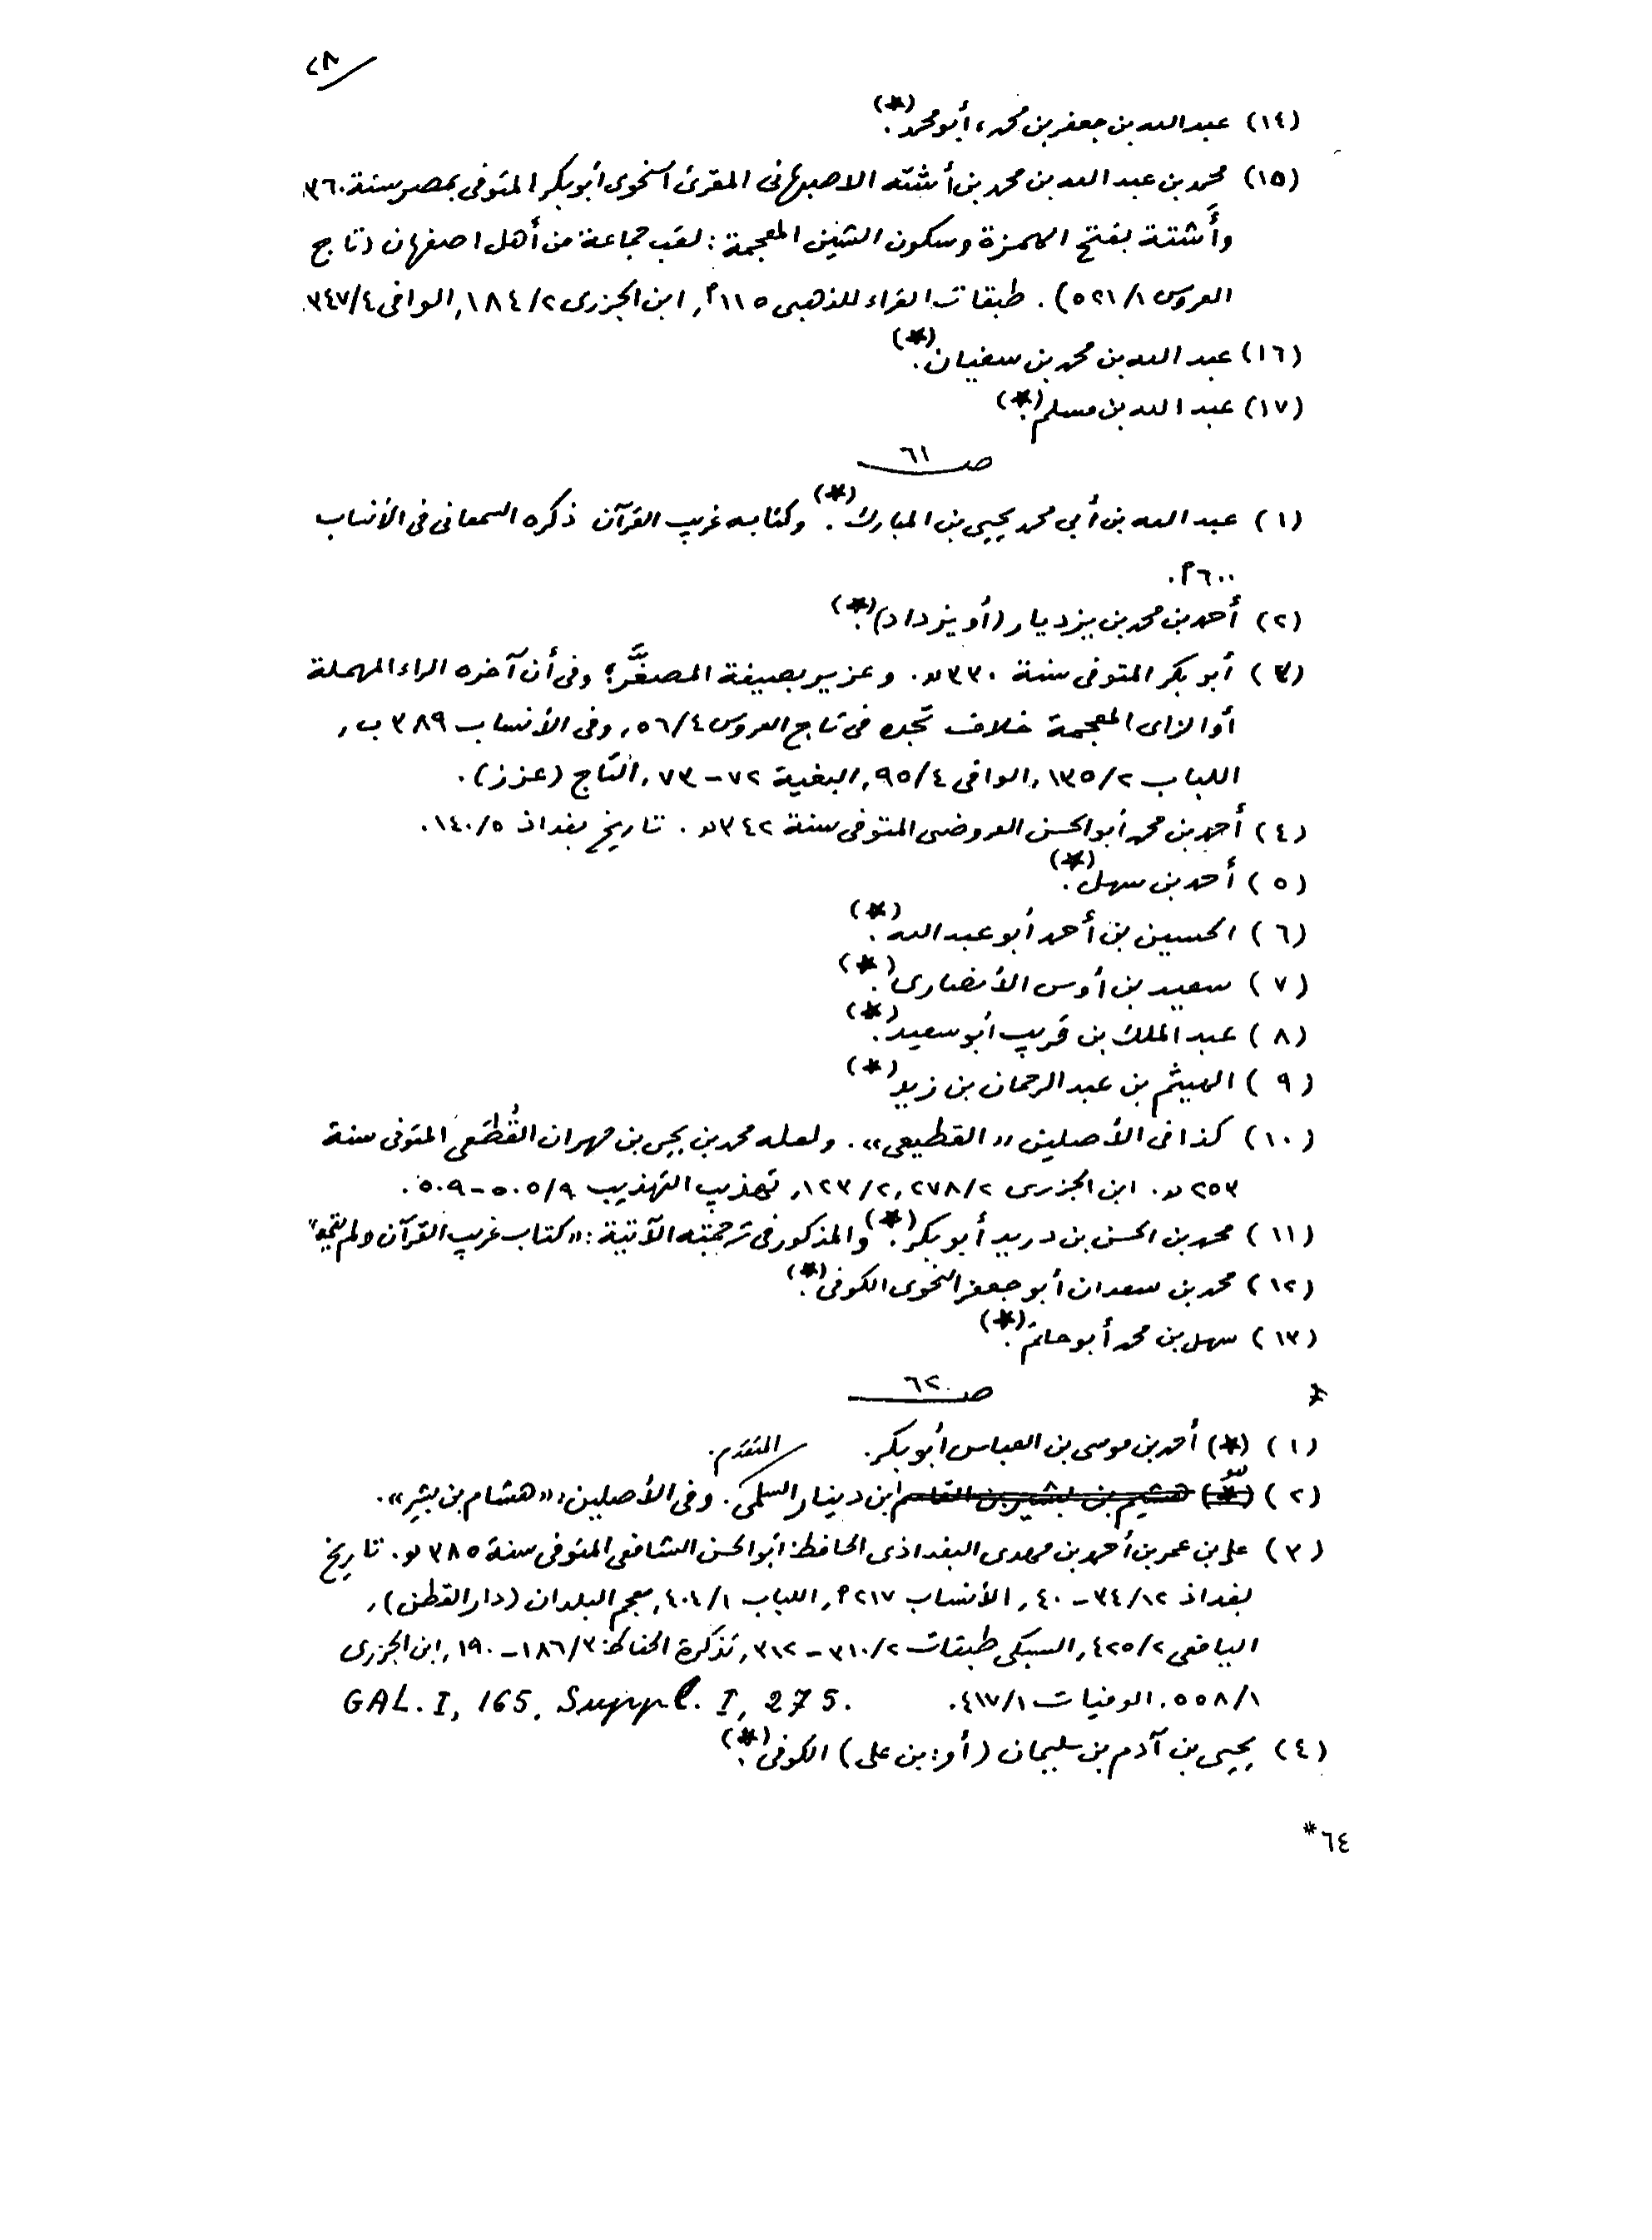 ٢٨
(١٤) عبد الله بن جعفر بن محمد، أبو محمد(*).
(١٥) محمد بن عبد الله بن محمد بن أشته الاصبهانى المقرئ النحوى أبو بكر المتوفى بمصر سنة ٣٦٠.
وأَشتة بفتح الهمزة وسكون الشين المعجمة: لقب جماعة من أهل اصفهان (تاج
العروس ٥٢١/١). طبقات القراء للذهبى ١١٥م, ابن الجزرى ١٨٤/٢, الوافى ٣٤٧/٤.
(١٦) عبد الله بن محمد بن سفيان(*).
(١٧) عبد الله بن مسلم(*).
صـ ٦١
(١) عبد الله بن أبي محمد يحيى بن المبارك(*). وكتابه غريب القرآن ذكره السمعانى فى الأنساب
٦٠٠م.
(٢) أحمد بن محمد بن يزديار (أو يزداد)(*).
(٣) أبو بكر المتوفى سنة ٣٣٠ هـ. وعزير بصيغة المصغَّر؛ وفى أن آخره الراء المهملة
أو الزاى المعجمة خلاف تجده فى تاج العروس ٥٦/٤, وفى الأنساب ٣٨٩ ب,
اللباب ١٣٥/٢, الوافى ٩٥/٤, البغية ٧٢-٧٣, التاج (عزز).
(٤) أحمد بن محمد أبو الحسن العروضى المتوفى سنة ٣٤٢ هـ. تاريخ بغداد ١٤٠/٥.
(٥) أحمد بن سهل(*).
(٦) الحسين بن أحمد أبو عبد الله(*).
(٧) سعيد بن أوس الأنصارى(*).
(٨) عبد الملك بن قريب أبو سعيد(*).
(٩) الهيثم بن عبد الرحمان بن زيد(*)
(١٠) كذا فى الأصلين «القطيعى». ولعله محمد بن يحيى بن مهران القُطَعى المتوفى سنة
٢٥٣ هـ. ابن الجزرى ٢٧٨/٢, ١٢٣/٢, تهذيب التهذيب ٥٠٥/٩-٥٠٩.
(١١) محمد بن الحسن بن دريد أبو بكر(*). والمذكور فى ترجمته الآتية: «كتاب غريب القرآن ولم يتمه»
(١٢) محمد بن سعدان أبو جعفر النحوى الكوفى(*).
(١٣) سهل بن محمد أبو حاتم(*).
صـ ٦٢
(١) (*) أحمد بن موسى بن العباس أبو بكر.
(٢) (*) هشيم بن بشير بن القاسم ابن دينار السلمى المتقدم. وفى الأصلين: «هشام بن بشير».
(٣) على بن عمر بن أحمد بن مهدى البغداذى الحافظ أبو الحسن الشافعى المتوفى سنة ٣٨٥ هـ. تاريخ
بغداد ٣٤/١٢-٤٠, الأنساب ٢١٧م, اللباب ٤٠٤/١, معجم البلدان (دار القطن),
اليافعى ٤٢٥/٢, السبكى طبقات ٣١٠/٢-٣١٢, تذكرة الحفاظ ١٨٦/٣-١٩٠, ابن الجزرى
٥٥٨/١, الوفيات ٤١٧/١. GAL. I, 165, Suppl. I, 275.
(٤) يحيى بن آدم بن سليمان (أو: بن على) الكوفى(*).
٦٤*